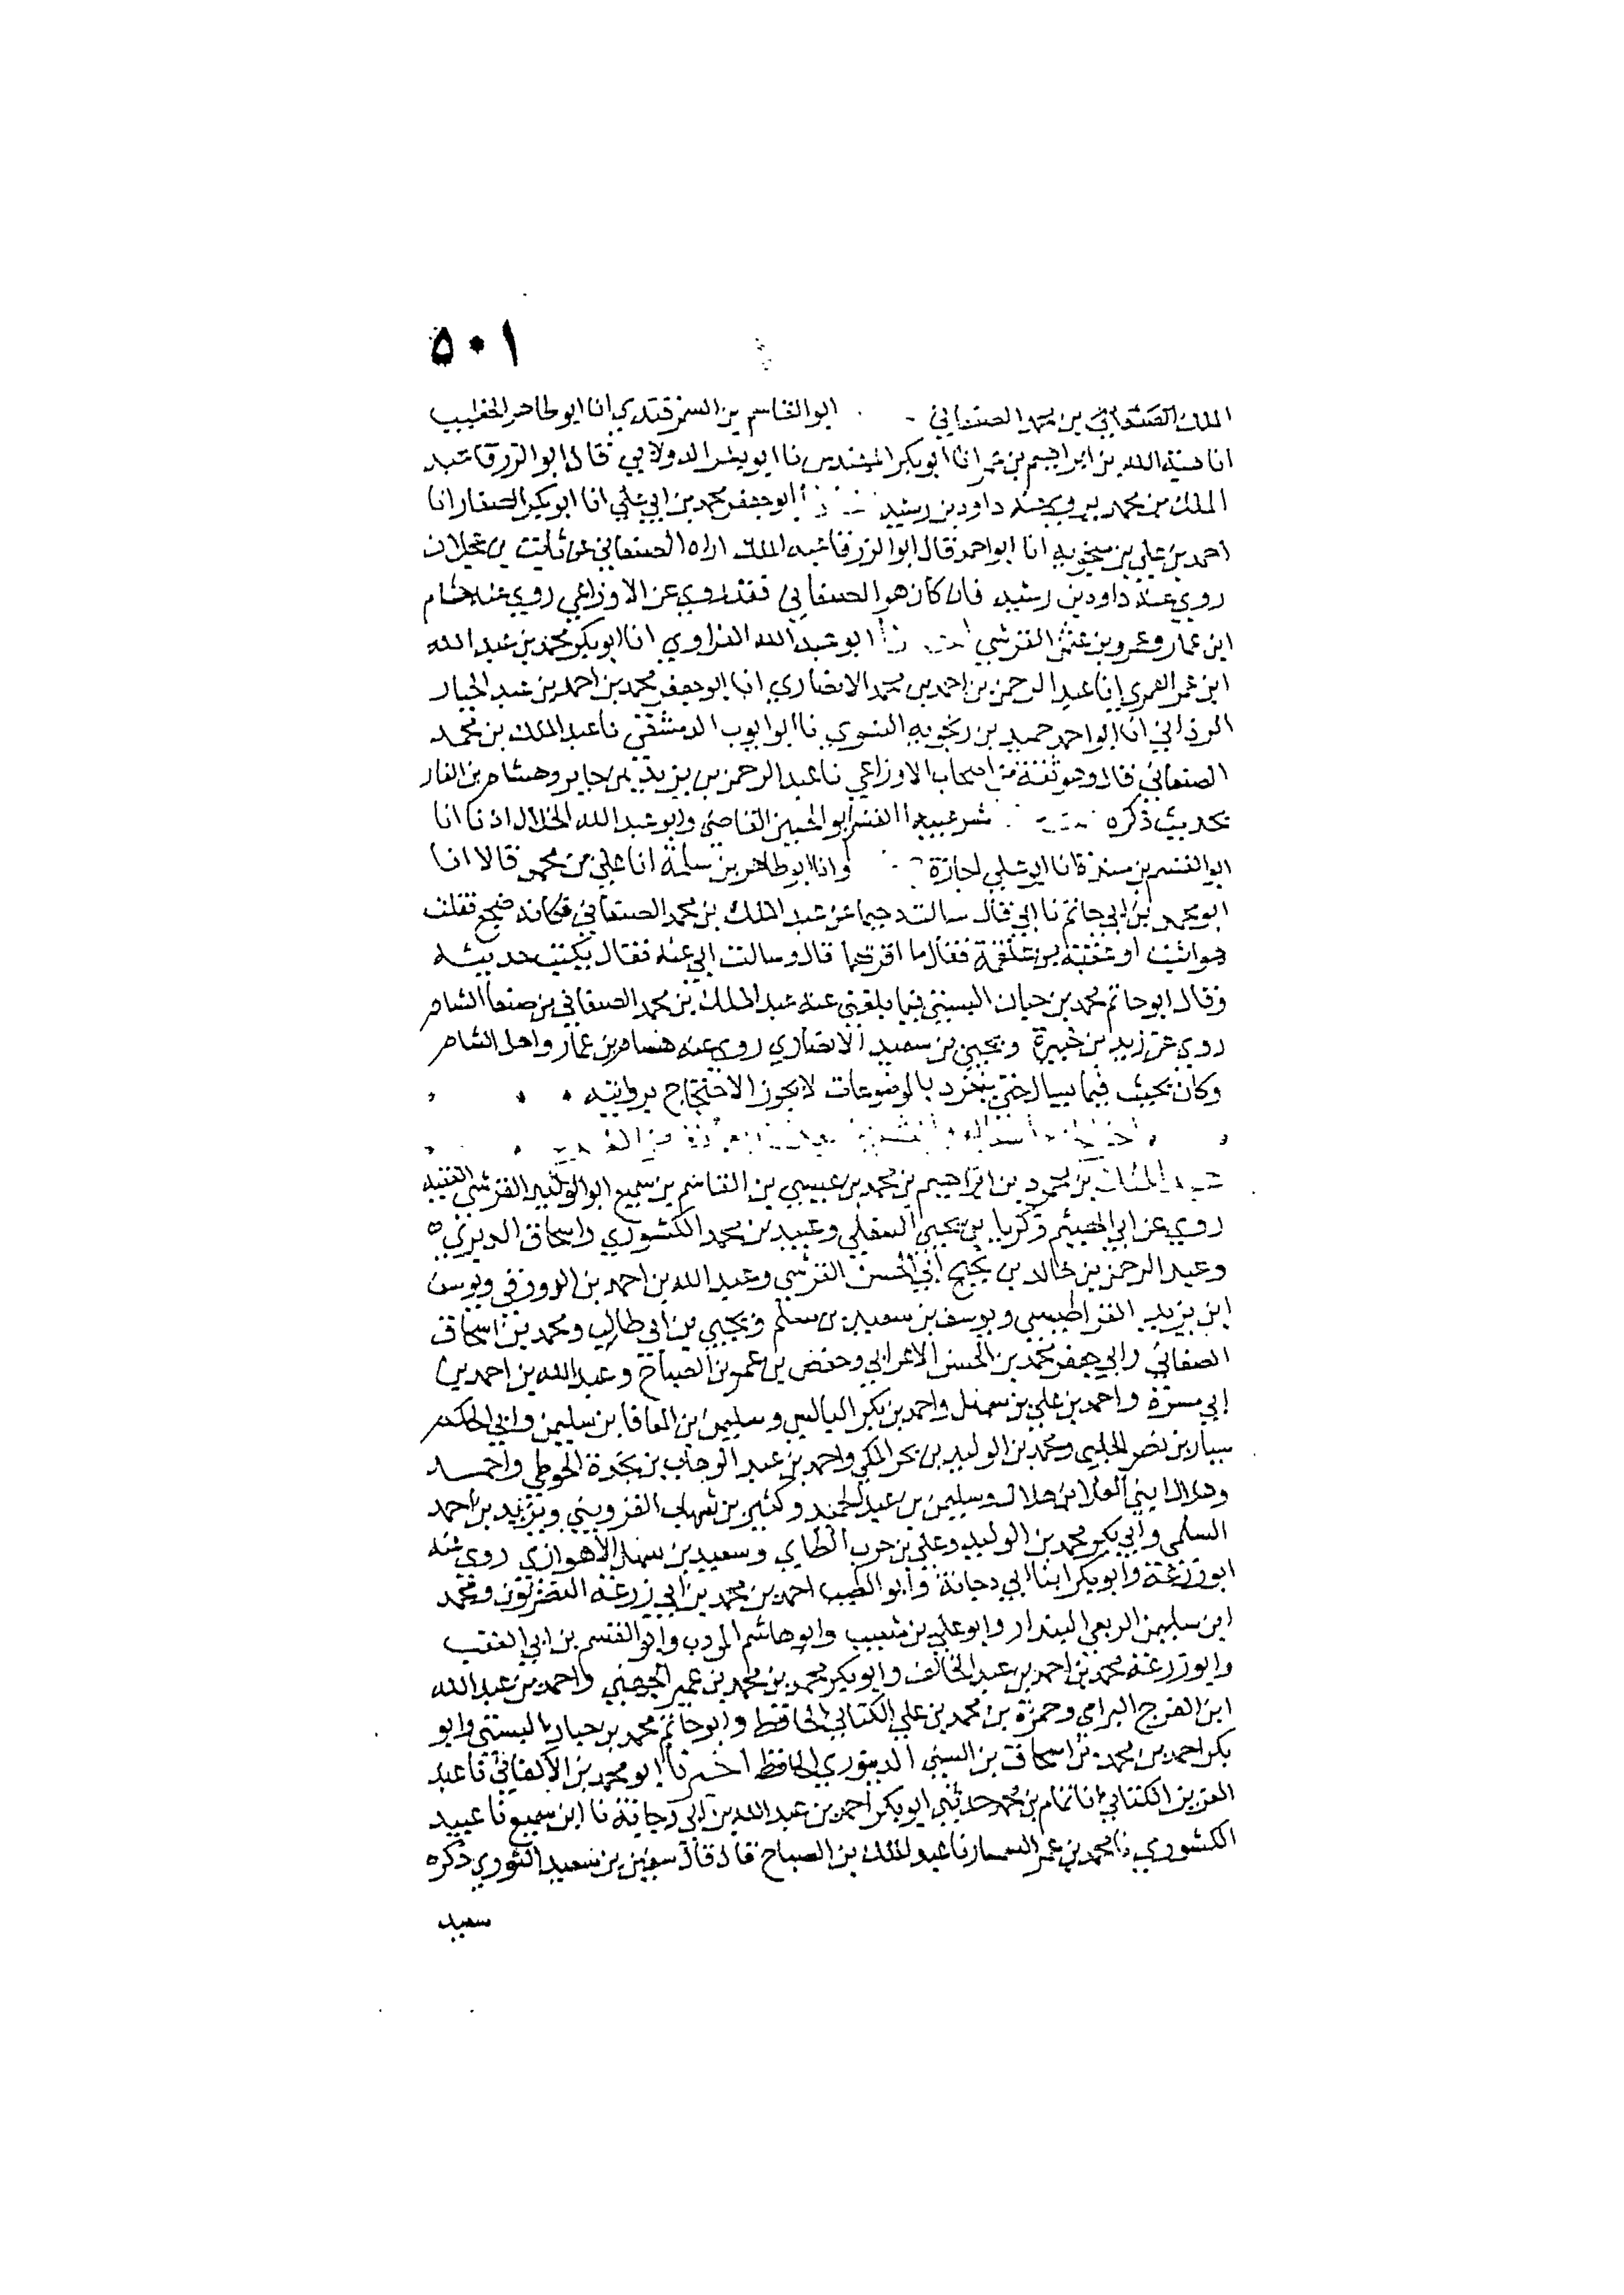 ٥٠١
الملك الصنعاني بن محمد الصنعاني ابو القاسم بن السمرقندي انا ابو طاهر الخطيب
انا هبة الله بن ابراهيم بن عمر انا ابو بكر المهندس نا ابو بشر الدولابي قال ابو الزرقا عبد
الملك بن محمد يروي عنه داود بن رشيد ابو جعفر محمد بن ابي علي انا ابو بكر الصفار انا
احمد بن علي بن منجويه انا ابو احمد قال ابو الزرقا عبد الملك اراه الصنعاني عن ثابت بن عجلان
روي عنه داود بن رشيد فان كان هو الصنعاني فقد روي عن الاوزاعي روي عنه هشام
ابن عمار وعمرو بن عثمن القرشي ابو عبد الله الفراوي انا ابو بكر محمد بن عبد الله
ابن عمر العمري انا عبد الرحمن بن احمد بن محمد الانصاري انا ابو جعفر محمد بن احمد بن عبد الجبار
الرذاني انا ابو احمد حميد بن زنجويه النسوي نا ابو ايوب الدمشقي نا عبد الملك بن محمد
الصنعاني قال وهو ثقة من اصحاب الاوزاعي نا عبد الرحمن بن يزيد بن جابر وهشام بن الغاز
بحديث ذكره ابو الحسين القاضي وابو عبد الله الخلال اذنا انا
ابو القسم بن مندة انا ابو علي اجازة وانا ابو طاهر بن سلمة انا علي بن محمد قالا انا
ابو محمد بن ابي حاتم نا ابي قال سالت دحيما عن عبد الملك بن محمد الصنعاني فكانه ضجع فقلت
هو اثبت او عقبة بن علقمة فقال ما اقربهما قال وسالت ابي عنه فقال يكتب حديثه
وقال ابو حاتم محمد بن حبان البستي فيما بلغني عنه عبد الملك بن محمد الصنعاني من صنعا الشام
روي عن زيد بن جبيرة ويحيي بن سعيد الانصاري روي عنه هشام بن عمار واهل الشام
وكان يجيب فيما يسال حتي ينفرد بالموضوعات لا يجوز الاحتجاج بروايته
عبد الملك بن محمود بن ابراهيم بن محمد بن عيسي بن القاسم بن سميع ابو الوليد القرشي الفقيه
روي عن ابي الهيثم زكريا بن يحيي السقلي وعبيد بن محمد الكشوري واسحاق الدبري
وعبد الرحمن بن خالد بن نجيح ابي الحسن القرشي وعبد الله بن احمد بن الدورقي ويوسف
ابن يزيد القراطيسي ويوسف بن سعيد بن مسلم ويحيي بن ابي طالب ومحمد بن اسحاق
الصغاني وابي جعفر محمد بن الحسن الاعرابي وحفص بن عمر بن الصباح وعبد الله بن احمد بن
ابي مسرة واحمد بن علي بن سهل واحمد بن بكر البالسي وسليمن بن المعافا بن سليمن وابي الحكم
سيار بن نصر الحلبي ومحمد بن الوليد بن بحر المكي واحمد بن عبد الوهاب بن نجدة الحوطي واحمد
وهلال ابني العلا بن هلال وسليمن بن عبد الحميد وكثير بن شهاب القزويني ويزيد بن احمد
السلمي وابي بكر محمد بن الوليد وعلي بن حرب الطاي وسعيد بن سهل الاهوازي روي عنه
ابو زرعة وابو بكر ابنا ابي دجانة وابو الطيب احمد بن محمد بن ابي زرعة النصريون ومحمد
ابن سليمن الربعي البندار وابو علي بن شعيب وابو هاشم المودب وابو القسم بن ابي العقب
وابو زرعة محمد بن احمد بن عبد الخالق وابو بكر محمد بن محمد بن عمير الجهني واحمد بن عبد الله
ابن الفرج البرامي وحمزة بن محمد بن علي الكتاني الحافظ وابو حاتم محمد بن حبان البستي وابو
بكر احمد بن محمد بن اسحاق بن السني الدينوري الحافظ اخبرنا ابو محمد بن الاكفاني نا عبد
العزيز الكتاني انا تمام بن محمد حدثني ابو بكر احمد بن عبد الله بن ابي دجانة نا ابن سميع نا عبيد
الكشوري نا محمد بن عمر السمسار نا عبد الملك بن الصباح قال قال سفين بن سعيد الثوري ذكره
سعيد